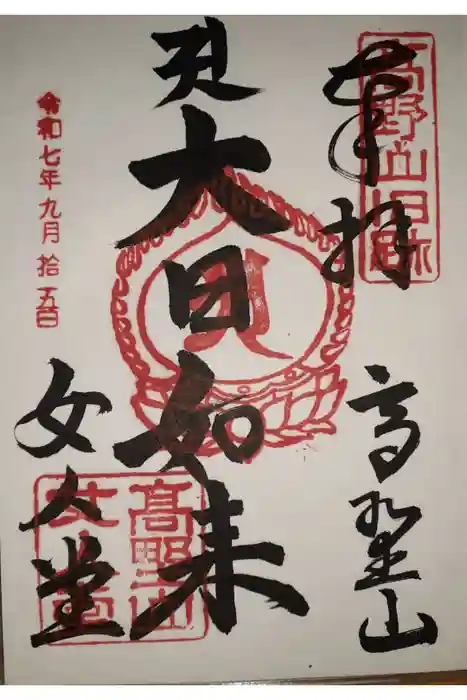 奉拝
高野山旧跡
高埜山
大日如来
令和七年九月拾五日
女人堂
高野山
女人堂